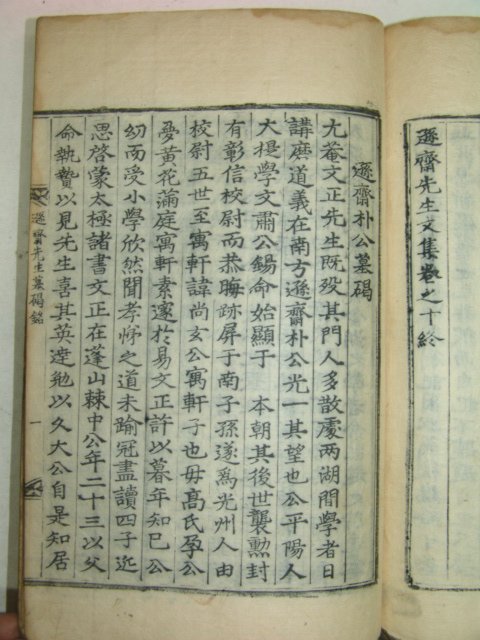 遜齋先生文集卷之十終
遜齋朴公墓碣
尤菴文正先生既歿其門人多散處兩湖間學者日
講磨道義在南方遜齋朴公光一其望也公平陽人
大提學文肅公錫命始顯于 本朝其後世襲勳封
有彰信校尉而恭晦跡屏于南子孫遂爲光州人由
校尉五世至寓軒諱尚玄公寓軒子也母高氏孕公
憂黃花滿庭寓軒素邃於易文正許以暮年知已公
幼而受小學欣然聞孝悌之道未踰冠盡讀四子近
思啓蒙太極諸書文正在蓬山棘中公年二十三以父
命執贄以見先生喜其英達勉以久大公自是知居
遜齋先生墓碣銘 一